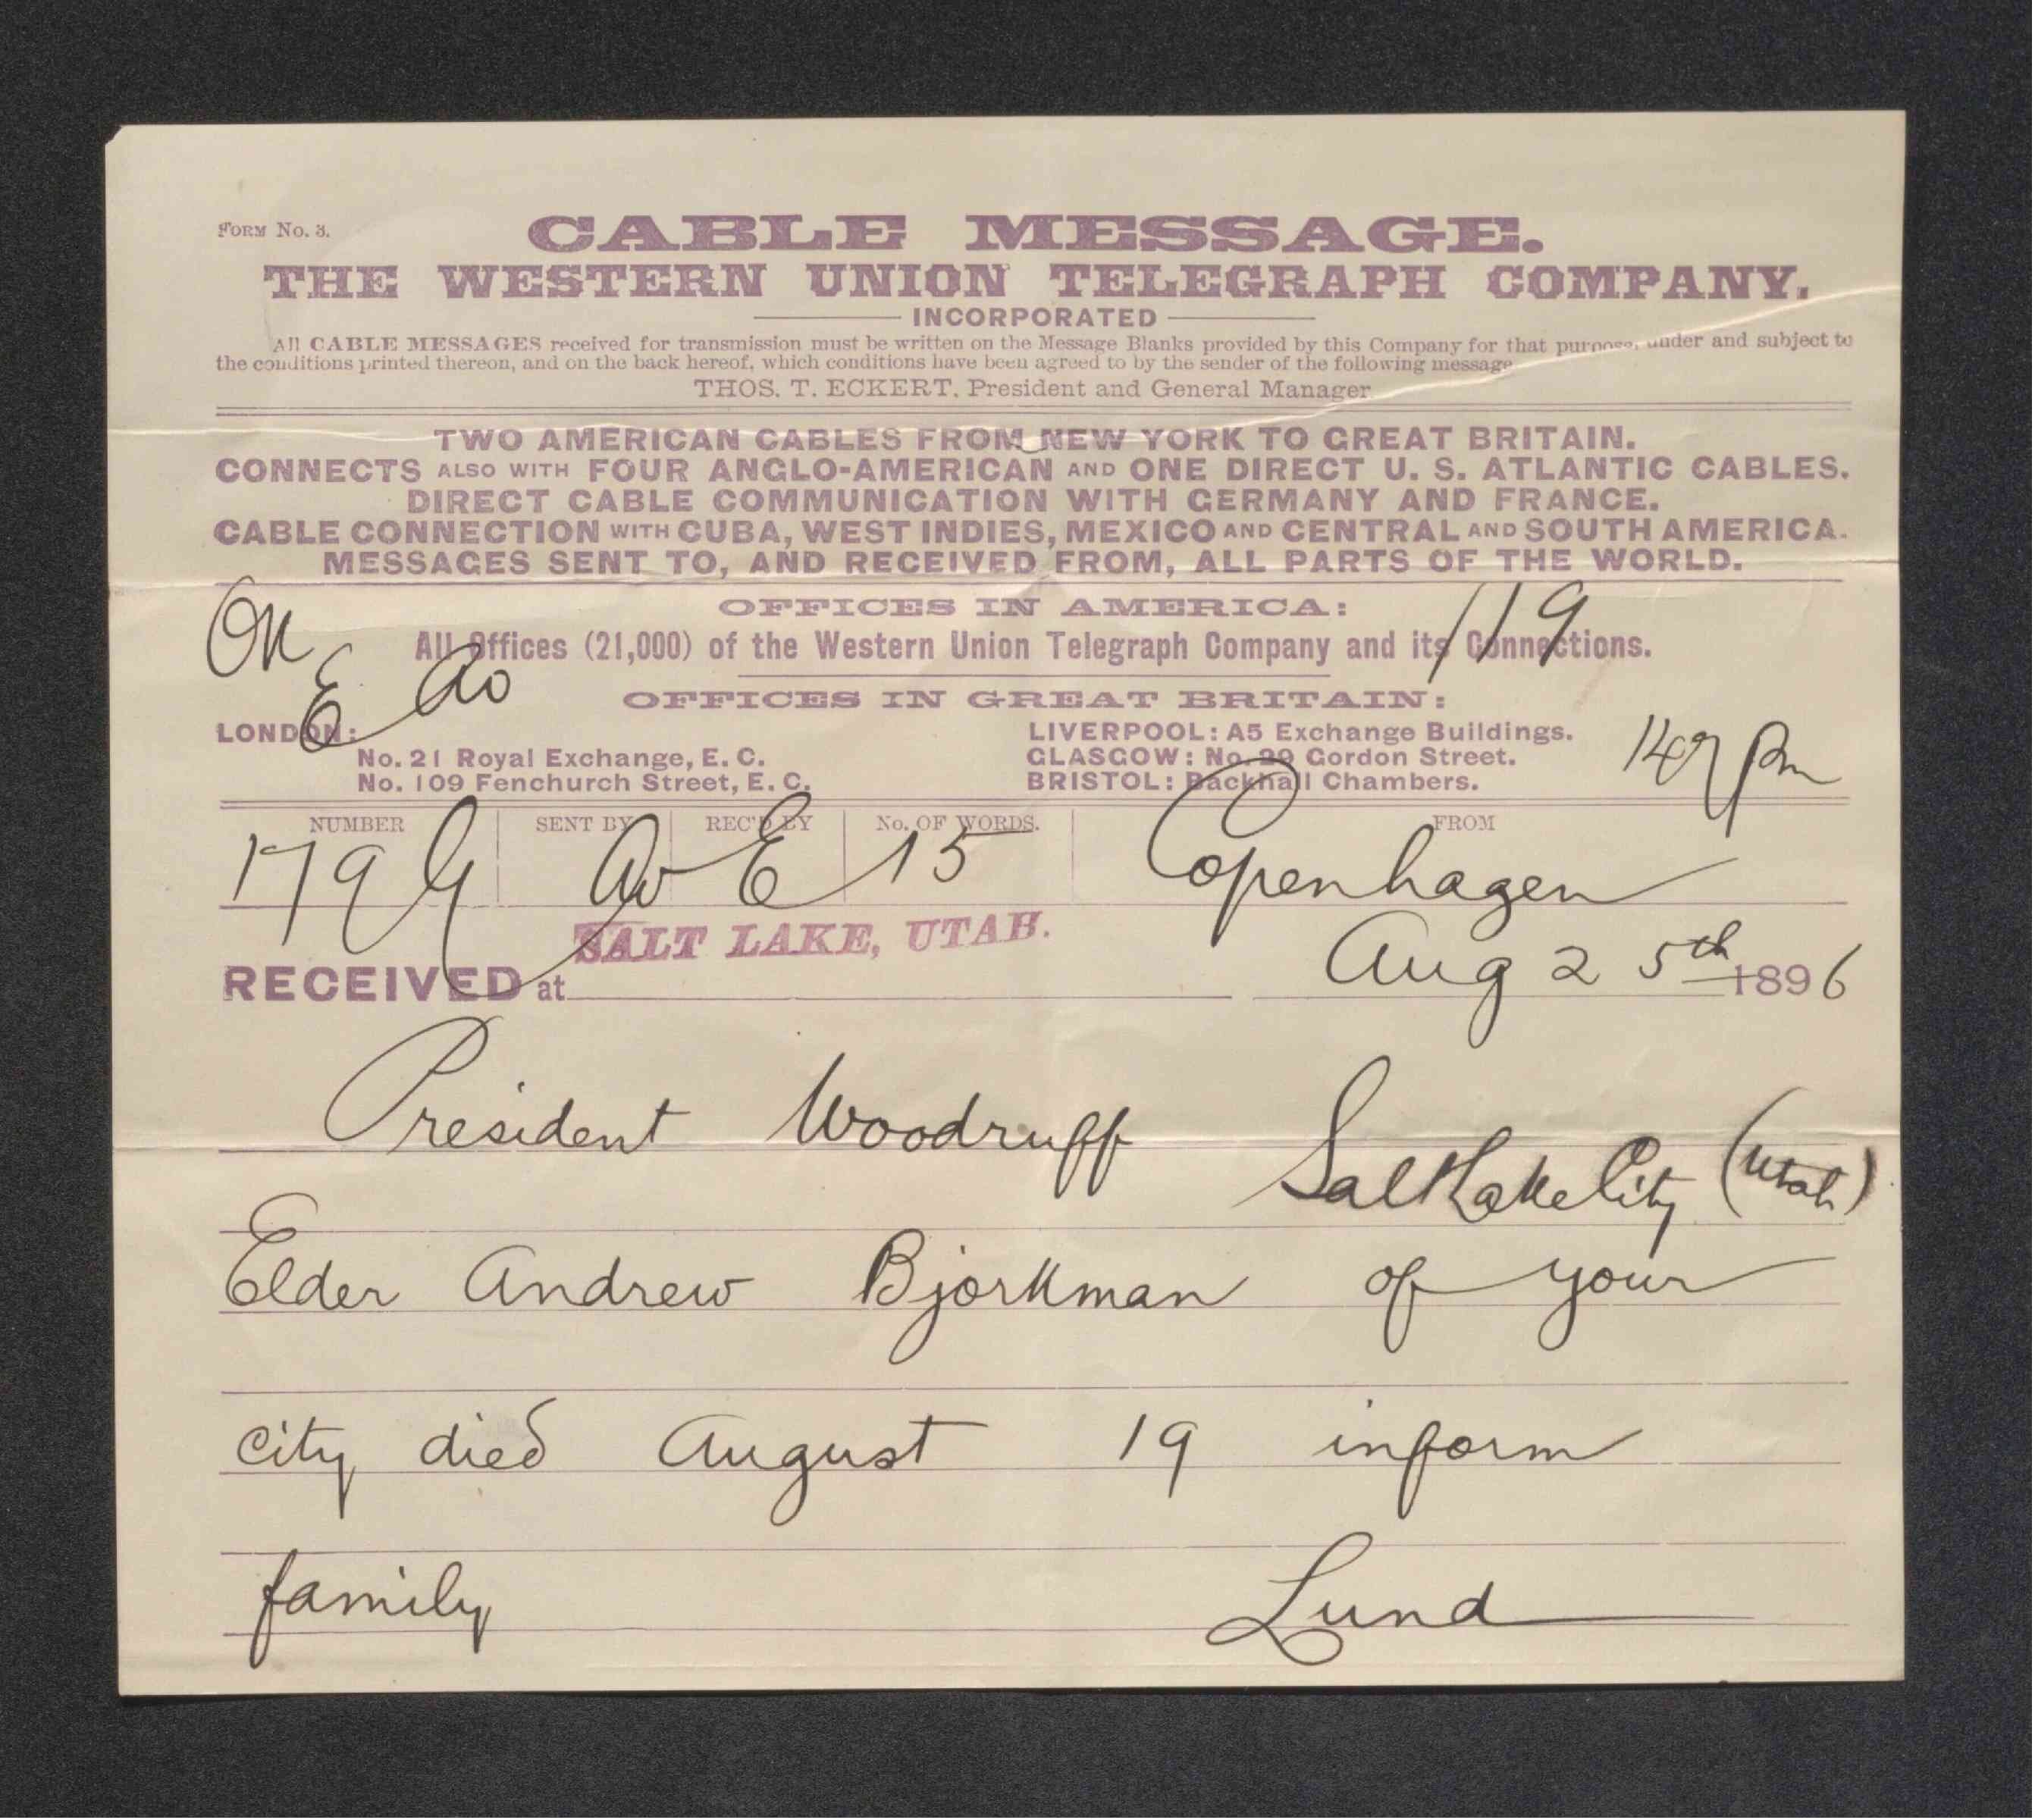 FORM No. 3.
CABLE MESSAGE.
THE WESTERN UNION TELEGRAPH COMPANY.
INCORPORATED
All CABLE MESSAGES received for transmission must be written on the Message Blanks provided by this Company for that purpose, under and subject to
the conditions printed thereon, and on the back hereof, which conditions have been agreed to by the sender of the following message
THOS. T. ECKERT, President and General Manager
TWO AMERICAN CABLES FROM NEW YORK TO GREAT BRITAIN.
CONNECTS ALSO WITH FOUR ANGLO-AMERICAN AND ONE DIRECT U. S. ATLANTIC CABLES.
DIRECT CABLE COMMUNICATION WITH GERMANY AND FRANCE.
CABLE CONNECTION WITH CUBA, WEST INDIES, MEXICO AND CENTRAL AND SOUTH AMERICA.
MESSAGES SENT TO, AND RECEIVED FROM, ALL PARTS OF THE WORLD.
OFFICES IN AMERICA:
119
All Offices (21,000) of the Western Union Telegraph Company and its Connections.
OFFICES IN GREAT BRITAIN:
LONDON:
No. 21 Royal Exchange, E. C.
No. 109 Fenchurch Street, E. C.
LIVERPOOL: A5 Exchange Buildings.
GLASGOW: No. 29 Gordon Street.
BRISTOL: Backhall Chambers.
pm
NUMBER SENT BY REC'D BY No. OF WORDS. FROM
179 E 15 Copenhagen
SALT LAKE, UTAH.
RECEIVED at Aug 25th 1896
President Woodruff
Salt Lake City (Utah)
Elder Andrew Bjorkman of your
city died August 19 inform
family Lund